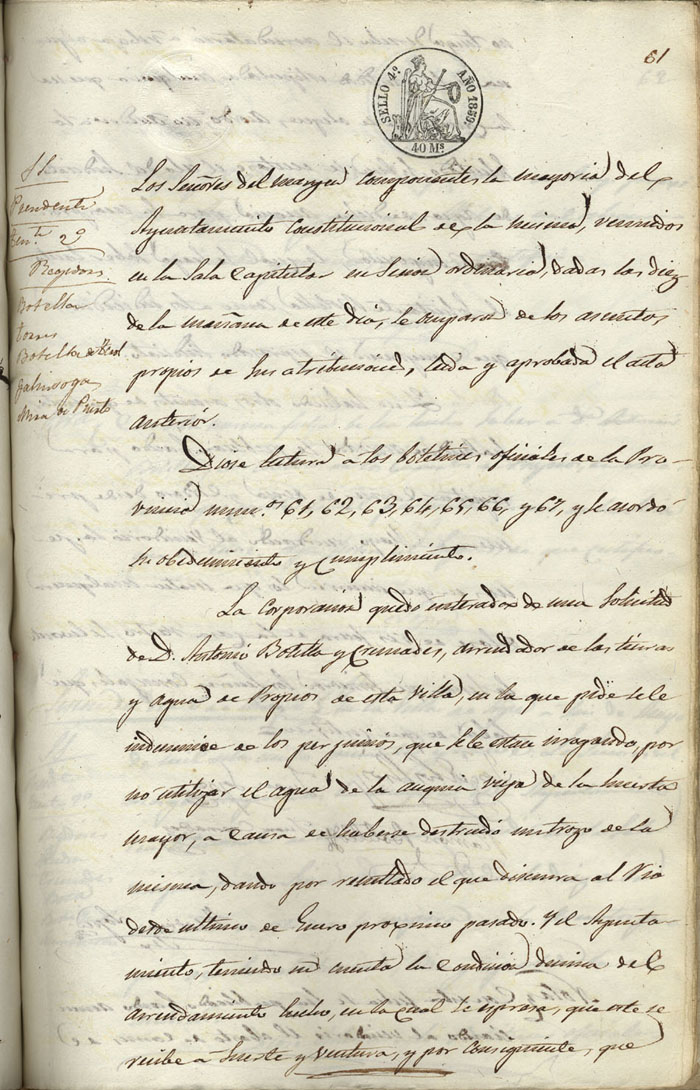 61
SELLO 4º AÑO 1859.
40 Ms
SS.
Presidente
Tente 2º
Regidores.
Botella
Torres
Botella de
Mira de Prieto
Los Señores del margen componentes la mayoria del
Ayuntamiento Constitucional de la misma, reunidos
en la Sala Capitular en Sesion ordinaria, dadas las diez
de la mañana de este dia, se ocuparon de los asuntos
propios de sus atribuciones, leida y aprobada el acta
anterior.
Diose lectura a los boletines oficiales de la Pro-
vincia numos 61, 62, 63, 64, 65, 66, y 67, y se acordó
su obedecimiento y cumplimiento.
La Corporacion quedó enterada de una Solicitud
de D. Antonio Botella y Cremades, arrendador de las tierras
y agua de Propios de esta villa, en la que pide se le
indemnice de los perjuicios, que se le estan irrogando, por
no utilizar el agua de la acequia vieja de la huerta
mayor, a causa de haberse destruido un trozo de la
misma, dando por resultado el que discurra al Rio
desde ultimo de Enero proximo pasado. Y el Ayunta-
miento, teniendo en cuenta la Condicion decima del
arrendamiento hecho, en la cual se espresa, que este se
recibe a Suerte y ventura, y por Consiguiente, que